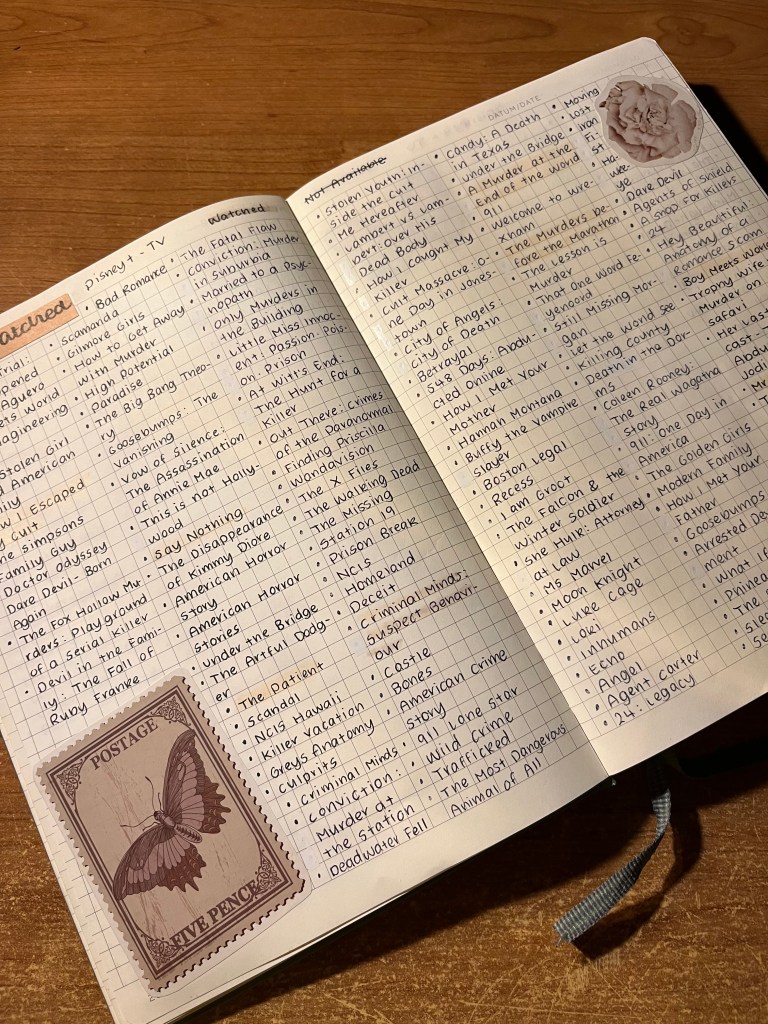 Disney+ - TV
Watched
atched
rial:
opened
Aguero
ets World
agineering
Stolen Girl
d American
ily
w I Escaped
Cult
he simpsons
Family Guy
Doctor Odyssey
Dare Devil - Born
Again
• The Fox Hollow Mu-
rders: Playground
of a serial killer
• Devil in the Fami-
ly: The Fall of
Ruby Franke
• Bad Romance
scamanda
• Gilmore Girls
• How to Get Away
with Murder
• High Potential
• Paradise
• The Big Bang Theo-
ry
• Goosebumps: The
Vanishing
• Vow of Silence:
The Assassination
of Annie Mae
• This is not Holly-
wood
• Say Nothing
• The Disappearance
of Kimmy Diore
• American Horror
Story
• American Horror
Stories
• Under the Bridge
• The Artful Dodg-
er
• The Patient
• Scandal
• NCIS Hawaii
• Killer Vacation
• Greys Anatomy
• Culprits
• Criminal Minds
• Conviction:
Murder at
the Station
• Deadwater Fell
• The Fatal Flaw
• Conviction: Murder
in Suburbia
• Married to a Psyc-
hopath
• Only Murders in
the Building
• Little Miss Innoc-
ent: Passion. Pois-
on. Prison
• At Wit's End:
The Hunt for a
Killer
• Out There: Crimes
of the Paranormal
• Finding Priscilla
• Wandavision
• The X Files
• The Walking Dead
• The Missing
• Station 19
• Prison Break
• NCIS
• Homeland
• Deceit
• Criminal Minds:
Suspect Behavi-
our
• Castle
• Bones
• American Crime
Story
• 911 Lone Star
• Wild Crime
• Trafficked
• The Most Dangerous
Animal of All
POSTAGE
FIVE PENCE
DATUM/DATE
Not Available
• Stolen Youth: In-
side the Cult
• Me Hereafter
• Lambert vs. Lam-
bert: Over His
Dead Body
• How I Caught My
Killer
• Cult Massacre: O-
ne Day in Jones-
town
• City of Angels
City of Death
• Betrayal
• 548 Days: Abdu-
cted Online
• How I Met Your
Mother
• Hannah Montana
• Buffy the Vampire
Slayer
• Boston Legal
• Recess
• I am Groot
• The Falcon & the
Winter Soldier
• She Hulk: Attorney
at Law
• Ms Marvel
• Moon Knight
• Luke Cage
• Loki
• Inhumans
• Echo
• Angel
• Agent Carter
• 24: Legacy
• Candy: A Death
in Texas
• Under the Bridge
• A Murder at the
End of the World
• 911
• Welcome to Wre-
xham
• The Murders be-
fore the Marathon
• The Lesson is
Murder
• That One Word Fe-
yenoord
• Still Missing Mor-
gan
• Let the World See
• Killing County
• Death in the Dor-
ms
• Coleen Rooney:
The Real Wagatha
Story
• 911: One Day in
America
• The Golden Girls
• Modern Family
• How I Met Your
Father
• Goosebumps
• Arrested De
ment
• What if
• Phinea
• The S
• Sle
• Se
• Moving
• Lost
• Iron
Fi-
st
• Ha
wk-
ye
• Dare Devil
• Agents of Shield
• A Shop For Killers
• 24
• Hey Beautiful:
Anatomy of a
Romance Scam
• Boy Meets World
• Trophy Wife
Murder on
safari
• Her Last
cast
• T
Abdu
Jodi
• Mr